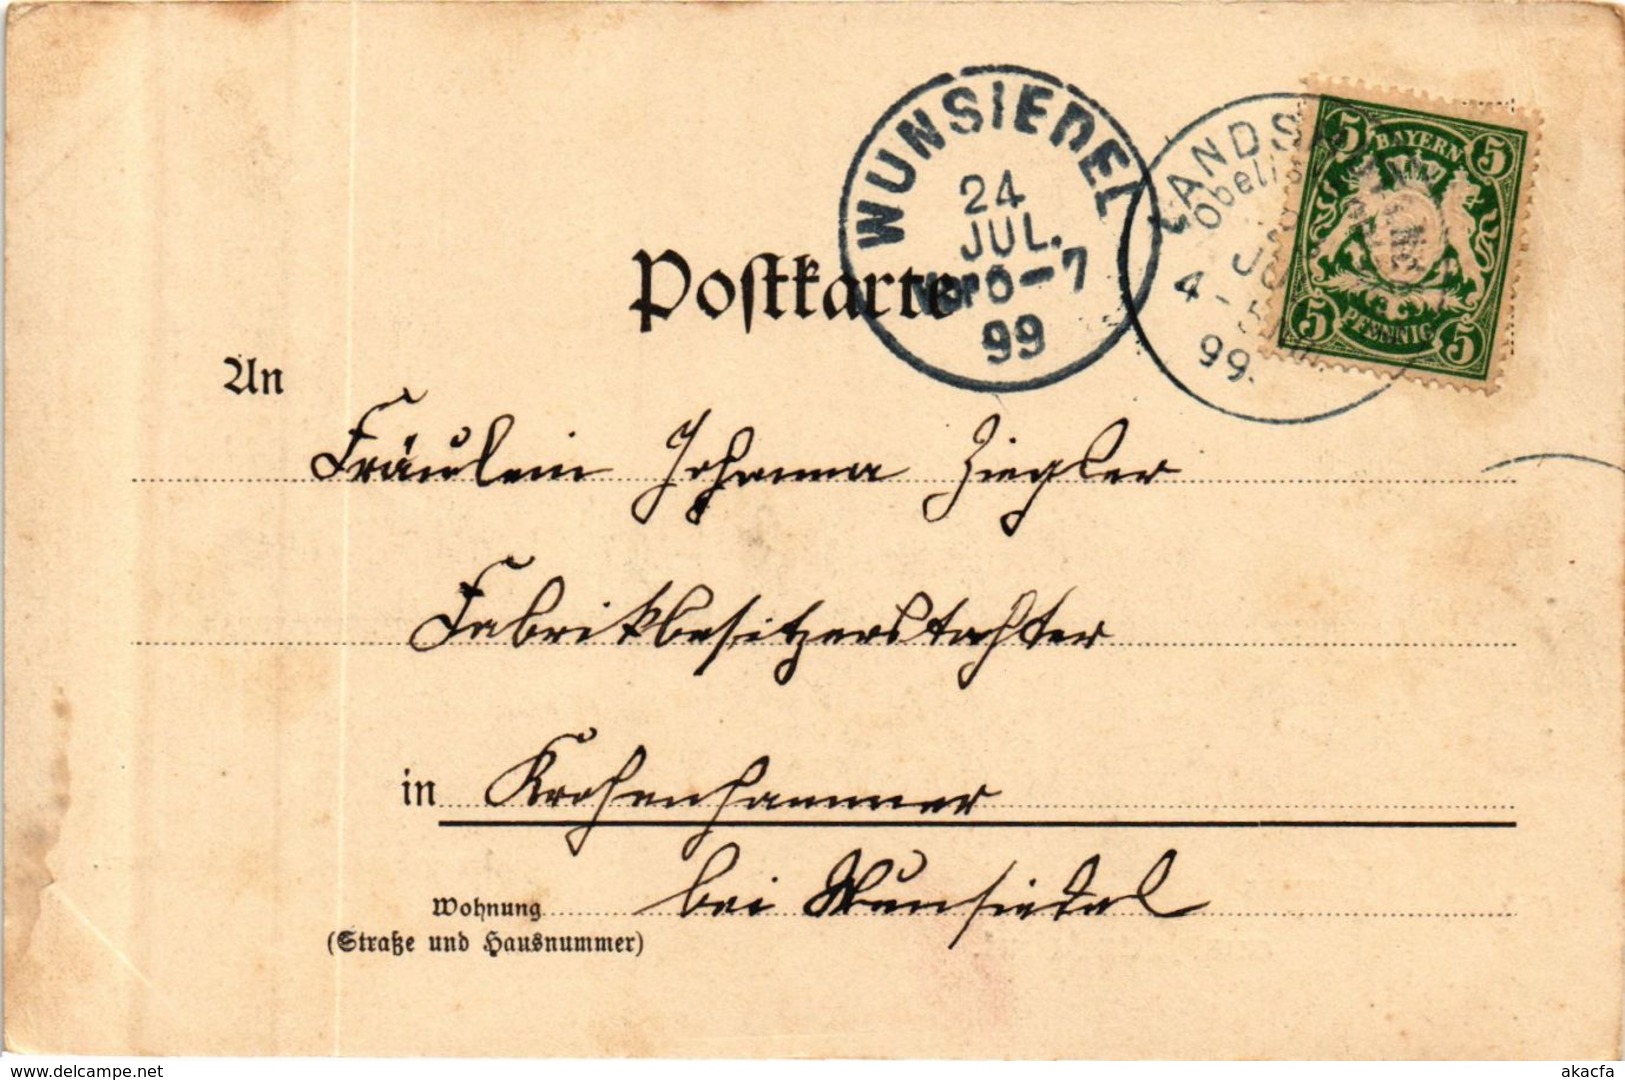 WUNSIEDEL
24
JUL.
Vor 6-7
99
LANDS
Obelis
4 - 5
99.
5 BAYERN 5
5 PFENNIG 5
Postkarte
An
Fräulein Johanna Ziegler
Fabrikbesitzerstochter
in Krohenhammer
bei Wunsiedel
Wohnung
(Straße und Hausnummer)
www.delcampe.net
akacfa